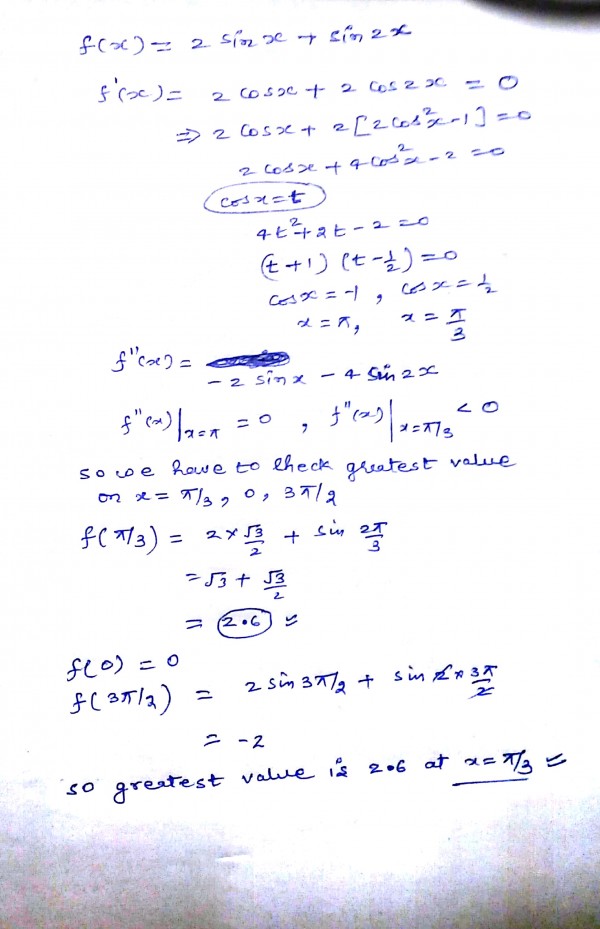 f(x) = 2 sin x + sin 2x
f'(x) = 2 cos x + 2 cos 2x = 0
⇒ 2 cos x + 2[2cos²x-1] = 0
2 cos x + 4 cos²x - 2 = 0
cos x = t
4t² + 2t - 2 = 0
(t+1) (t-1/2) = 0
cos x = -1 , cos x = 1/2
x = π, x = π/3
f''(x) =
- 2 sin x - 4 sin 2x
f''(x)|x=π = 0 , f''(x)|x=π/3 < 0
so we have to check greatest value
on x = π/3, 0, 3π/2
f(π/3) = 2×√3/2 + sin 2π/3
= √3 + √3/2
= 2.6
f(0) = 0
f(3π/2) = 2 sin 3π/2 + sin 2×3π/2
= -2
so greatest value is 2.6 at x = π/3